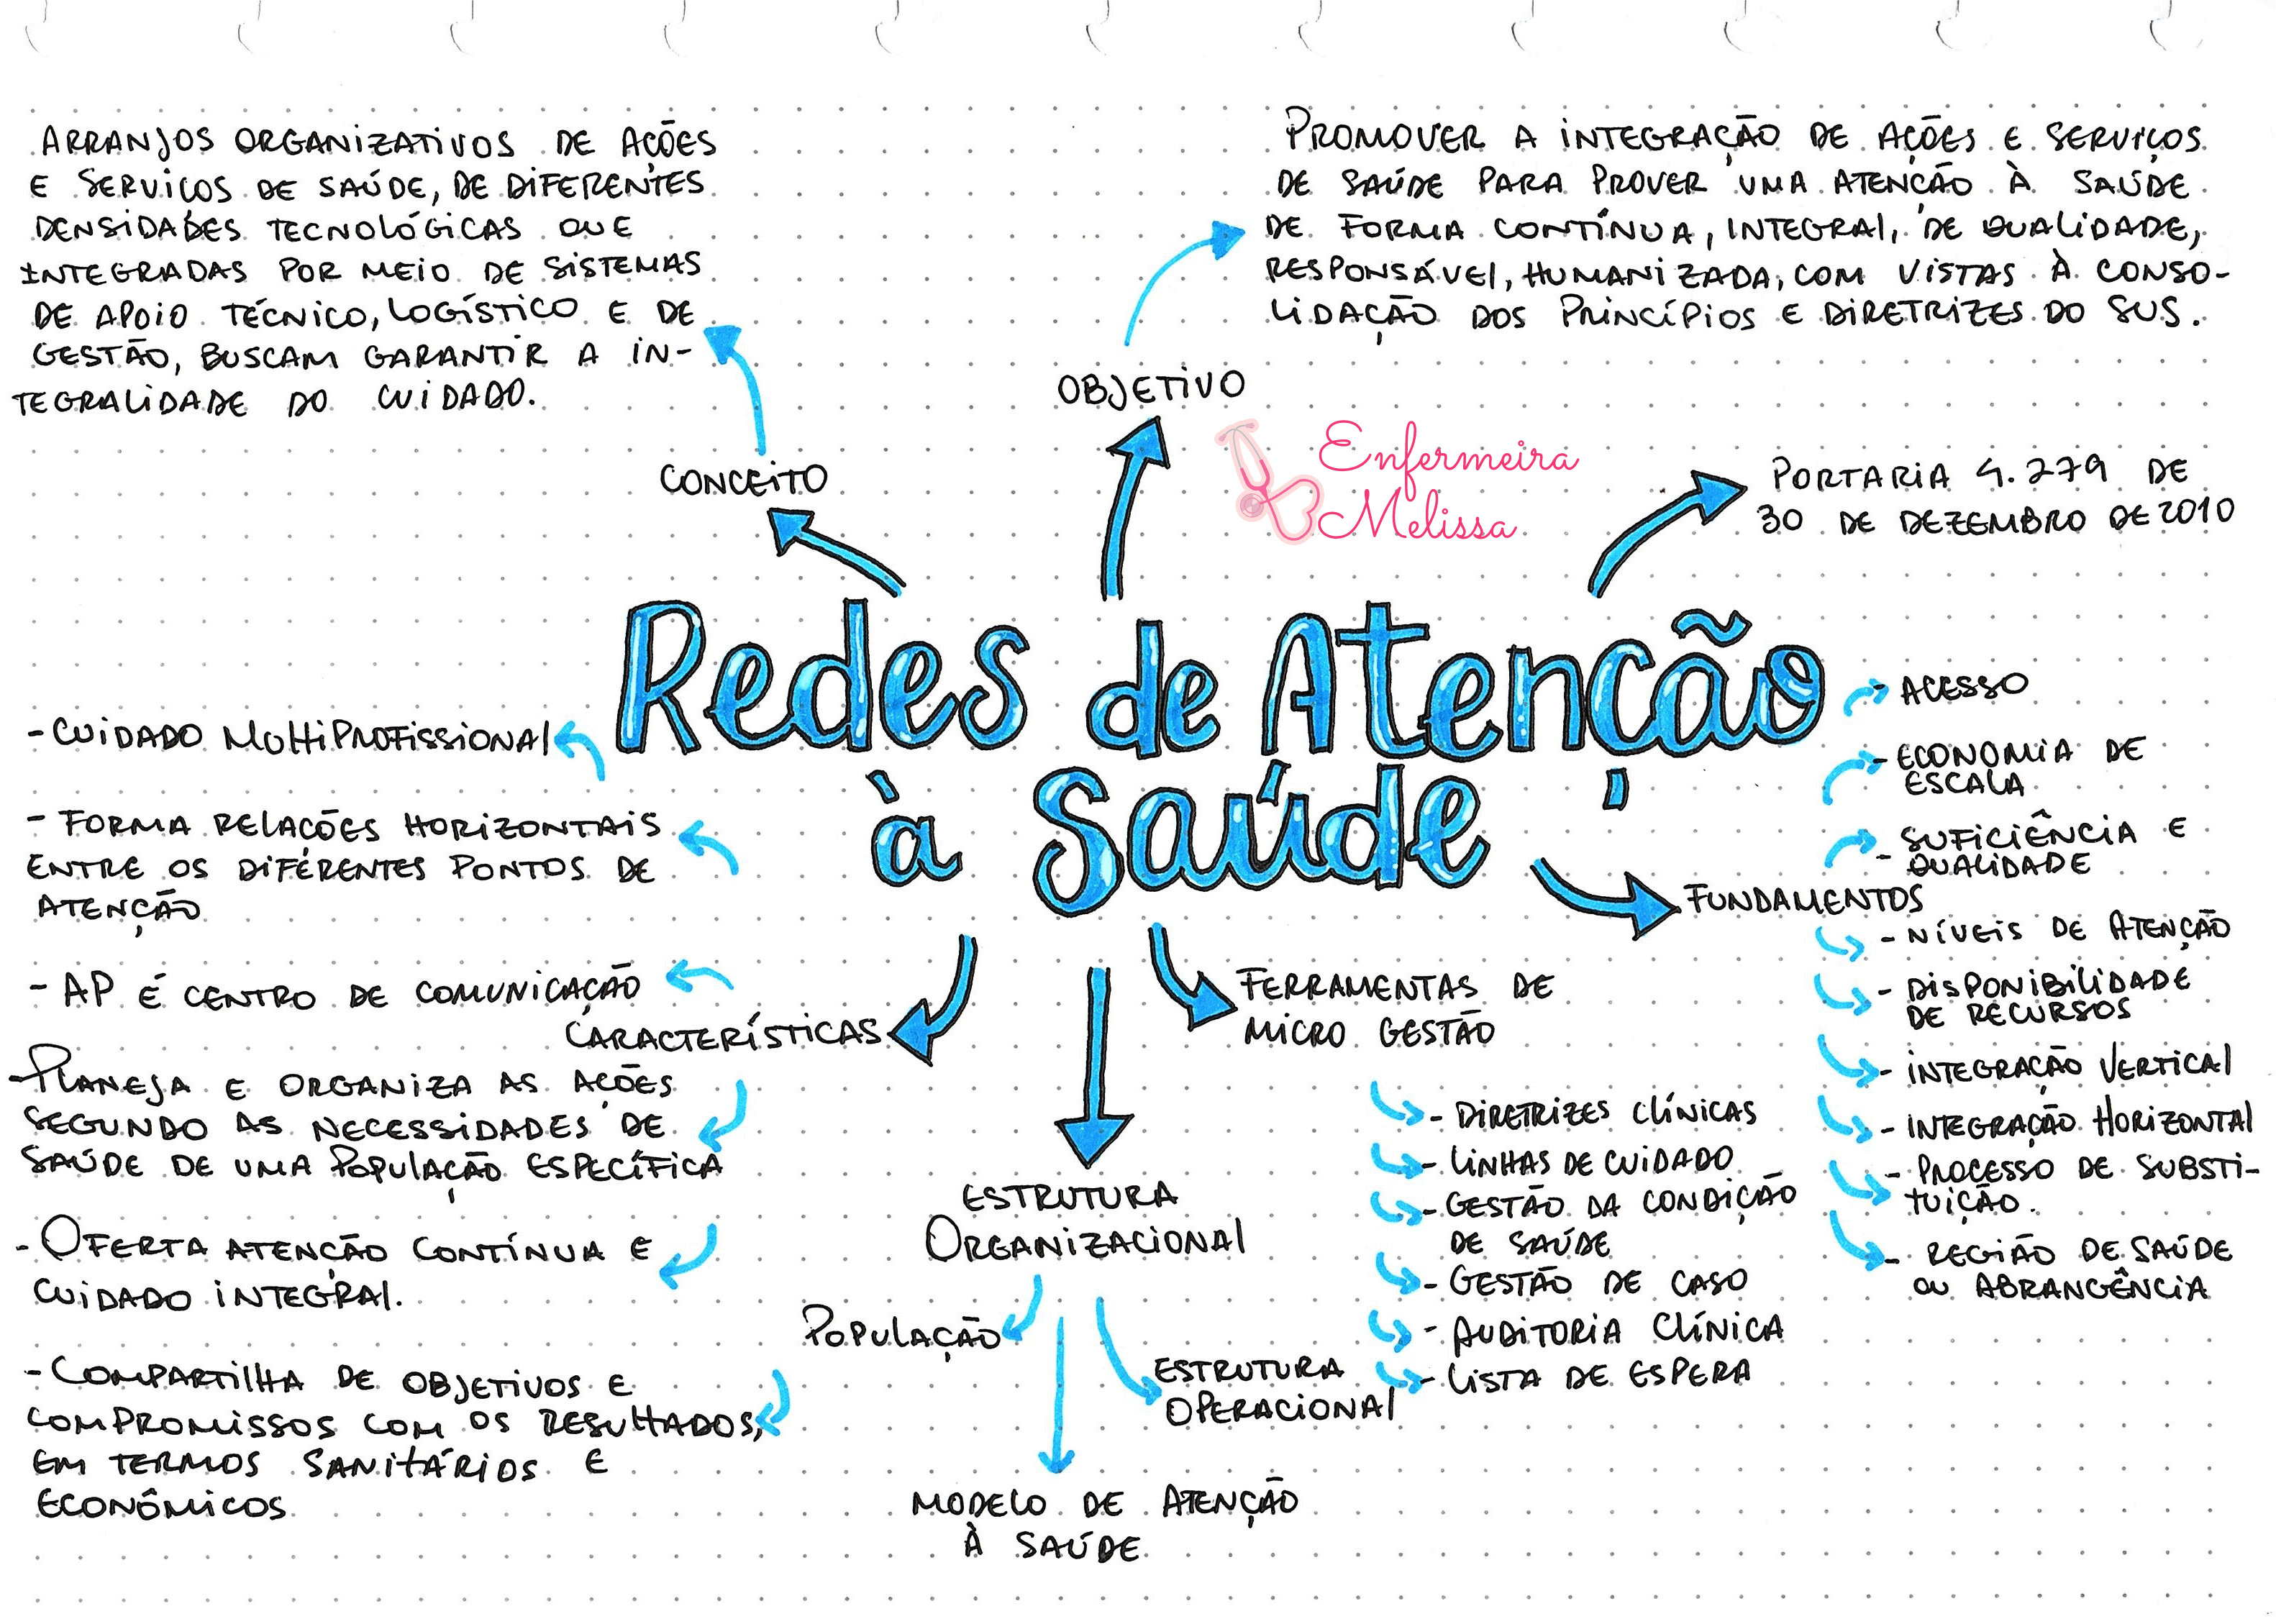 ARRANJOS ORGANIZATIVOS DE AÇÕES
E SERVIÇOS DE SAÚDE, DE DIFERENTES
DENSIDADES TECNOLÓGICAS QUE
INTEGRADAS POR MEIO DE SISTEMAS
DE APOIO TÉCNICO, LOGÍSTICO E DE
GESTÃO, BUSCAM GARANTIR A IN-
TEGRALIDADE DO CUIDADO.
CONCEITO
PROMOVER A INTEGRAÇÃO DE AÇÕES E SERVIÇOS
DE SAÚDE PARA PROVER UMA ATENÇÃO À SAÚDE
DE FORMA CONTÍNUA, INTEGRAL, DE QUALIDADE,
RESPONSÁVEL, HUMANIZADA, COM VISTAS À CONSO-
LIDAÇÃO DOS PRINCÍPIOS E DIRETRIZES DO SUS.
OBJETIVO
Enfermeira
Melissa
PORTARIA 4.279 DE
30 DE DEZEMBRO DE 2010
Redes de Atenção
à Saúde
- CUIDADO MULTIPROFISSIONAL
- FORMA RELAÇÕES HORIZONTAIS
ENTRE OS DIFERENTES PONTOS DE
ATENÇÃO
- AP É CENTRO DE COMUNICAÇÃO
CARACTERÍSTICAS
- PLANEJA E ORGANIZA AS AÇÕES
SEGUNDO AS NECESSIDADES DE
SAÚDE DE UMA POPULAÇÃO ESPECÍFICA
- OFERTA ATENÇÃO CONTÍNUA E
CUIDADO INTEGRAL.
- COMPARTILHA DE OBJETIVOS E
COMPROMISSOS COM OS RESULTADOS,
EM TERMOS SANITÁRIOS E
ECONÔMICOS
ESTRUTURA
ORGANIZACIONAL
POPULAÇÃO
ESTRUTURA
OPERACIONAL
MODELO DE ATENÇÃO
À SAÚDE
FERRAMENTAS DE
MICRO GESTÃO
- DIRETRIZES CLÍNICAS
- LINHAS DE CUIDADO
- GESTÃO DA CONDIÇÃO
DE SAÚDE
- GESTÃO DE CASO
- AUDITORIA CLÍNICA
- LISTA DE ESPERA
- ACESSO
- ECONOMIA DE
ESCALA
- SUFICIÊNCIA E
QUALIDADE
FUNDAMENTOS
- NÍVEIS DE ATENÇÃO
- DISPONIBILIDADE
DE RECURSOS
- INTEGRAÇÃO VERTICAL
- INTEGRAÇÃO HORIZONTAL
- PROCESSO DE SUBSTI-
TUIÇÃO.
- REGIÃO DE SAÚDE
OU ABRANGÊNCIA